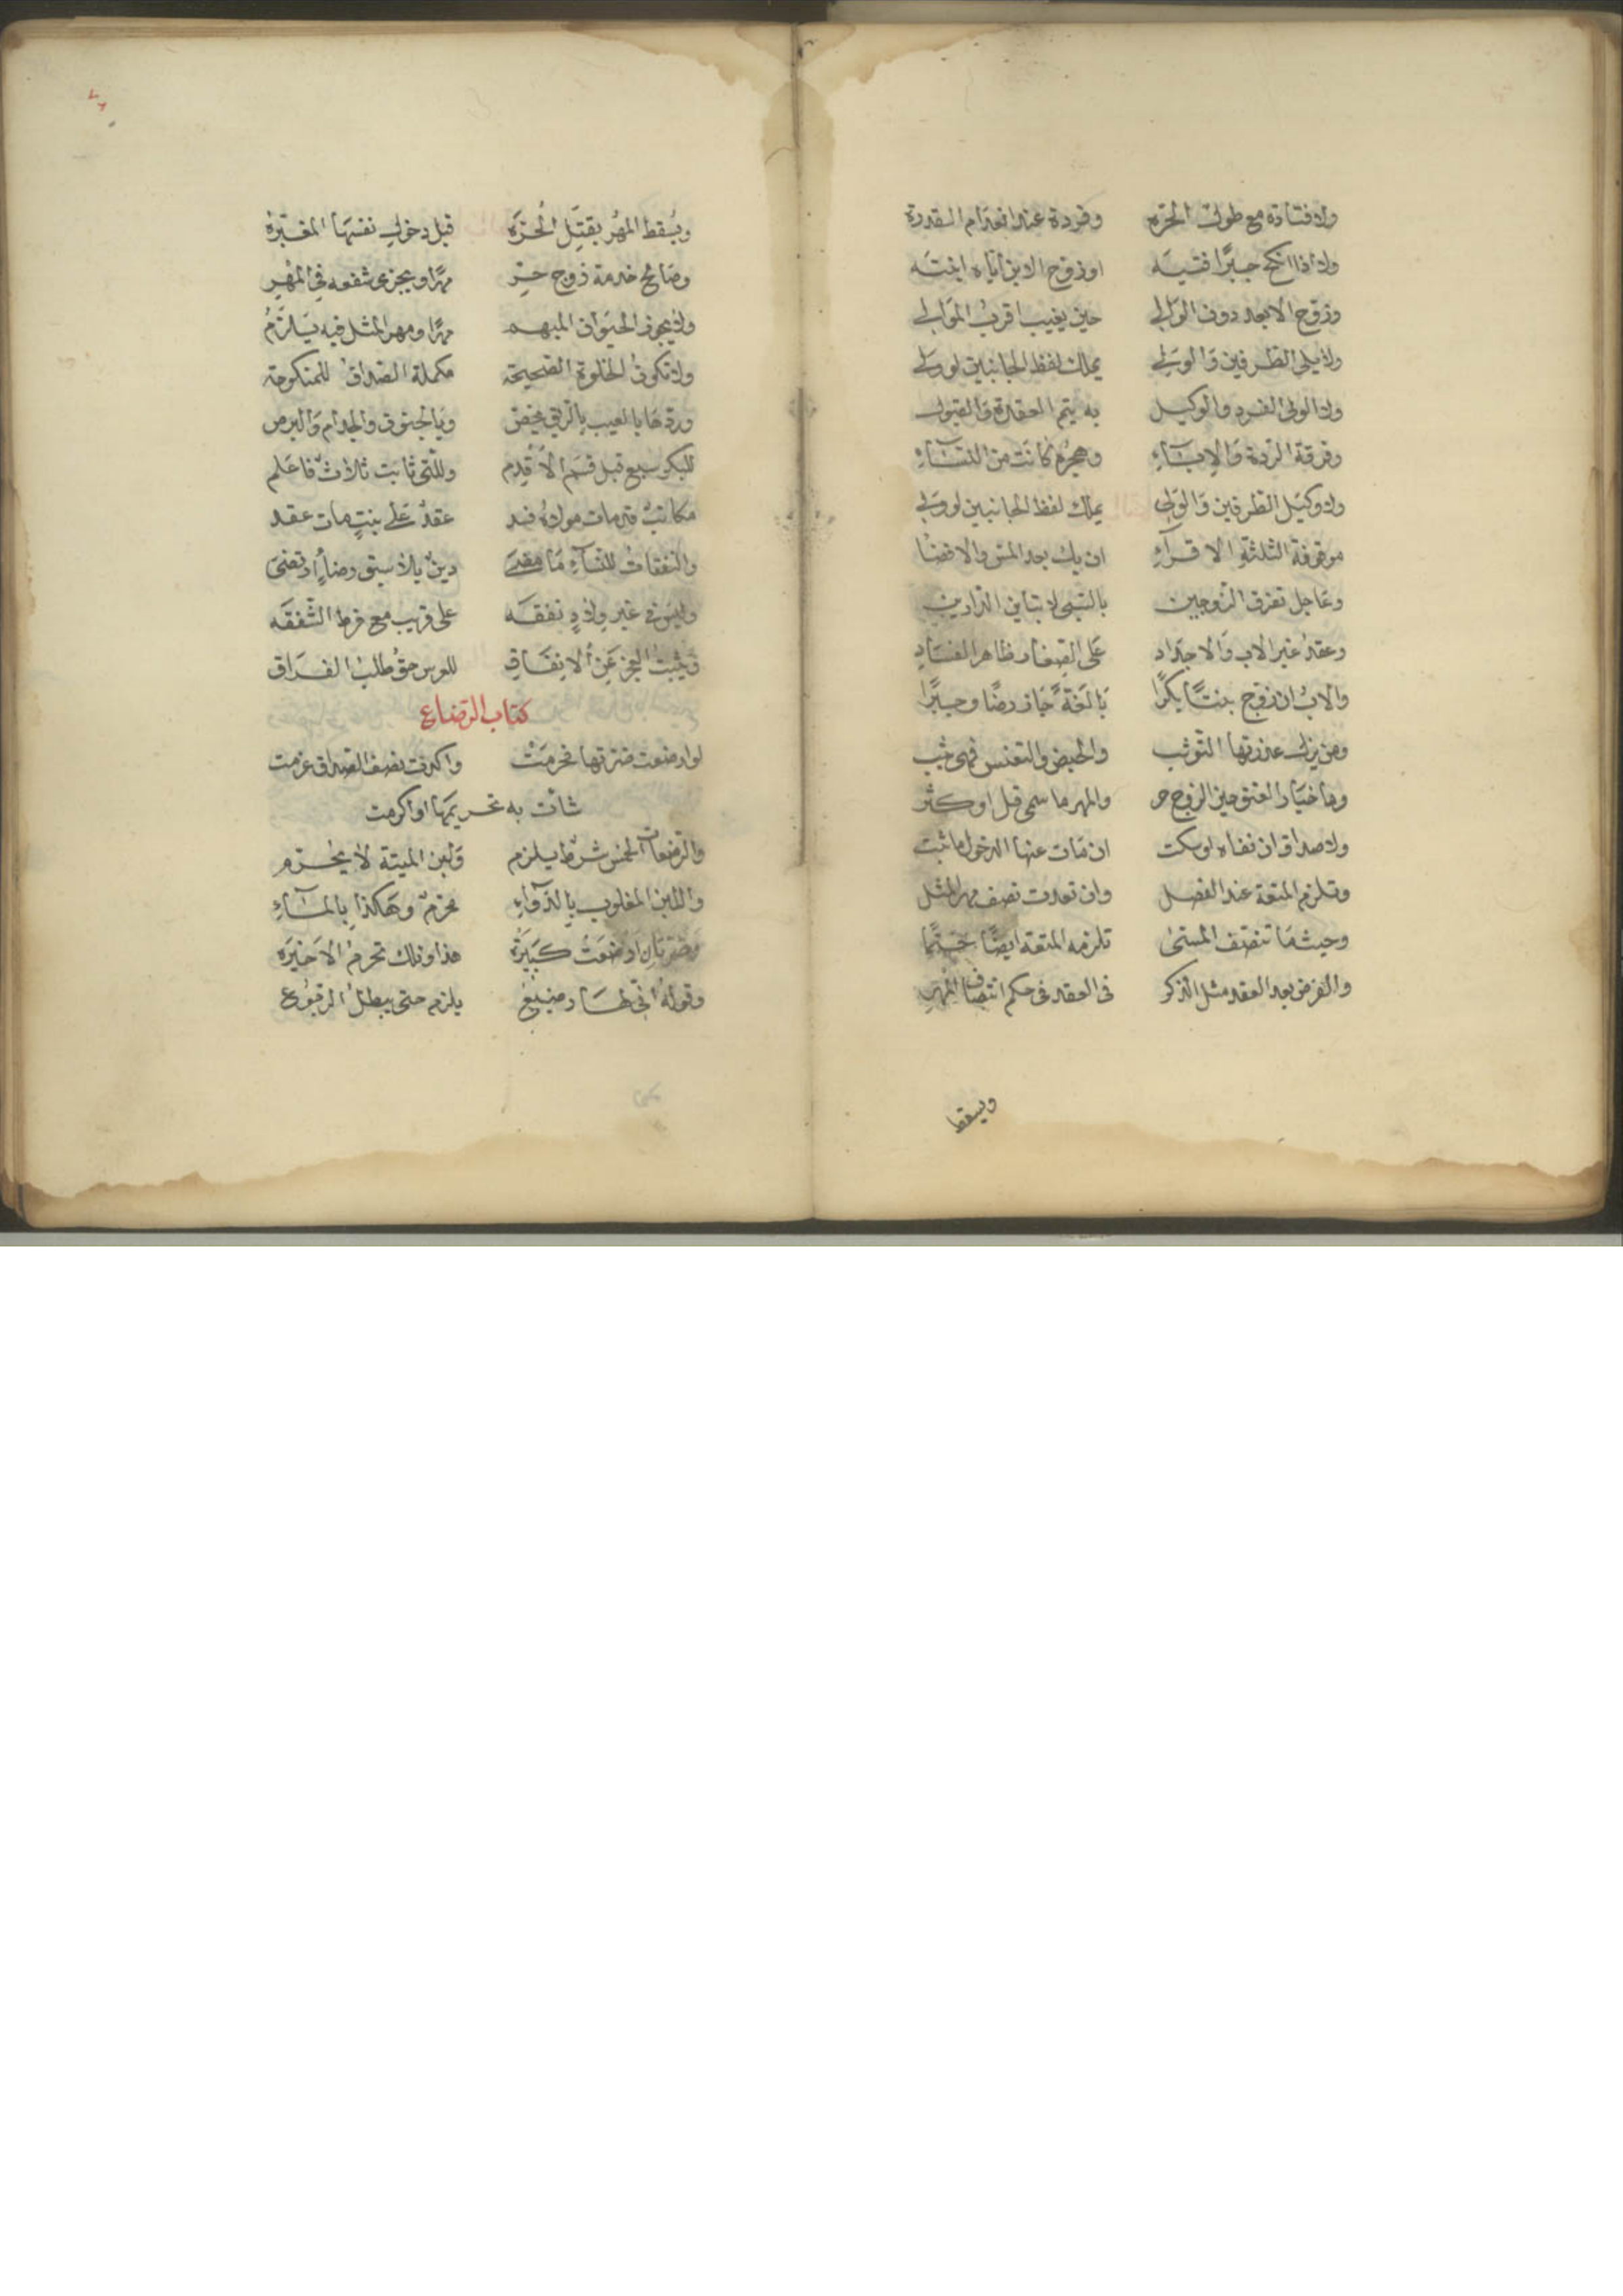 ولا فتاة مع طول الحرة وفردة عند انعدام القدرة
ولا اذا انكح جبرا فتيه او زوج الابن اباه ابنته
وزوج الابعد دون الوالي حين يغيب اقرب الموالي
ولا يلي الطرفين والولي يملك لفظ الجانبين لو ولي
ولا الولي الفرد والوكيل به يتم العقدة والقبول
وفرقة الردة والاباء وهجرة كانت من النساء
ولا وكيل الطرفين والولي يملك لفظ الجانبين لو ولي
موقوفة الثلثة الاقراء ان يك بعد المس والافضا
وعاجل تفرق الزوجين بالسبي لا تباين الدارين
وعقد غير الاب والاجداد على الصغار ظاهر الفساد
والاب ان زوج بنتا بكرا بالغة جاز رضا وجبرا
ومن يزل عذرتها التوثب والحيض والتعنس فهي ثيب
وما خيار العتق حين الزوج حر والمهر ما سمي قل او كثر
ولا صداق ان نفاه او سكت ان مات عنها الدخول ما ثبت
وتلزم المتعة عند الفصل وان تعدت نصف مهر المثل
وحيث ما تنصف المسمى تلزمه المتعة ايضا حتما
والفرض بعد العقد مثل الذكر في العقد في حكم انتصاف المهر
ويسقط
ويسقط المهر بقتل الحرة قبل دخول نفسها المغترة
وصالح خدمة زوج حر مهرا ويجزى شفعه في المهر
ولا يجوز الحيوان المبهم مهرا ومهر المثل فيه يلزم
ولا تكون الخلوة الصحيحة مكملة الصداق للمنكوحة
وردها بالعيب بالرتق يخص وبالجنون والجذام والبرص
للبكر سبع قبل قسم الاقدم وللتي ثابت ثلاث فاعلم
مكاتب قد مات مولاه فسد عقد على بنت مات عقد
والنفقات للنساء ما مضى دين بلا سبق رضا او قضى
وليس في غير ولاد نفقه على قريب مع فرط الشفقه
ويثبت العجز عن الانفاق للعرس حق طلب الفراق
كتاب الرضاع
لو ارضعت ضرتها فحرمت واكدت نصف الصداق غرمت
شات به تحريمها او اكرمت
والرضعات الخمس شرط يلزم ولبن الميتة لا يحرم
واللبن المغلوب بالدواء محرم وهكذا بالماء
وضرتان ارضعت كبيرة هذا وتلك تحرم الاخيرة
وقوله اني لها رضيع يلزم حتى يبطل الرجوع